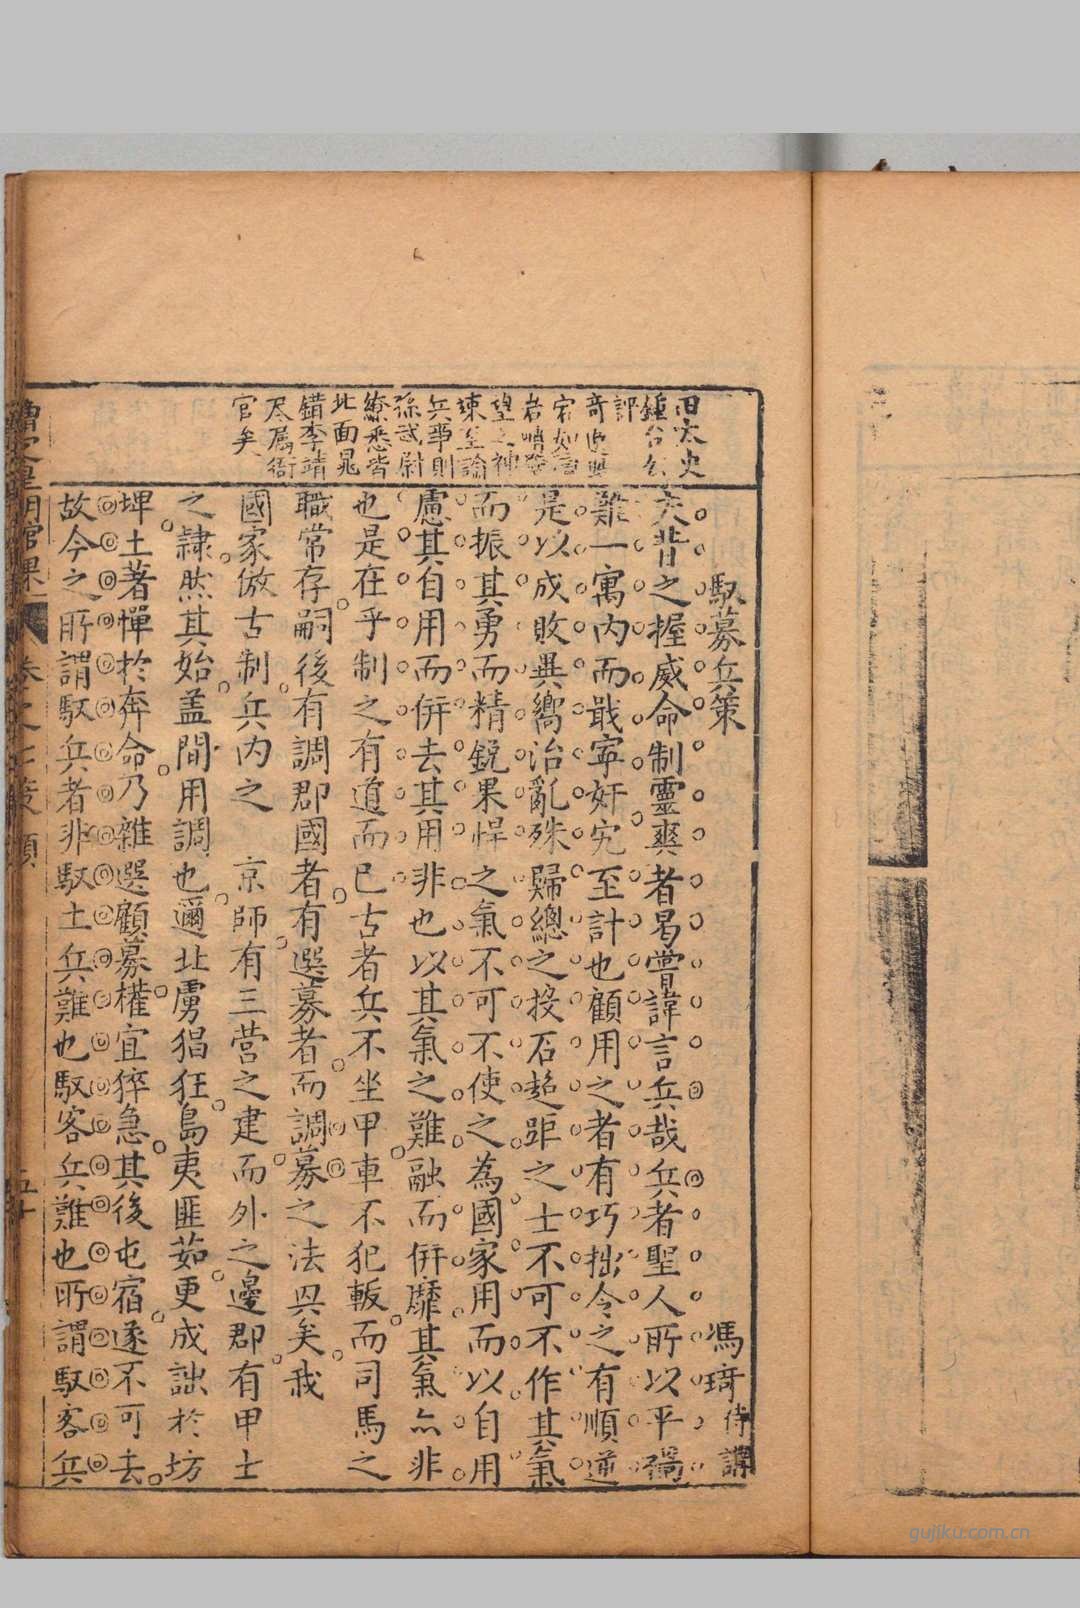 田太史
鍾台公
評
奇也興
官如信
岩嘖發
望之神
竦至論
兵事則
孫武尉
繚悉皆
北面晁
錯李靖
尽属衙
官矣
馭募兵策
馮琦侍講
夫昔之握威命制靈爽者曷嘗諱言兵哉兵者聖人所以平禍
難一寓内而戢寜奸宄至計也顧用之者有巧拙令之有順逆
是以成敗異嚮治亂殊歸總之投石超距之士不可不作其氣
而振其勇而精鋭果悍之氣不可不使之為國家用而以自用
慮其自用而併去其用非也以其氣之難融而併靡其氣亦非
也是在乎制之有道而已古者兵不坐甲車不犯軷而司馬之
職常存嗣後有調郡國者有選募者而調募之法異矣我
國家倣古制兵内之 京師有三营之建而外之邊郡有甲士
之隷然其始盖間用調也邇北虜猖狂島夷匪茹更成詘於坊
埤土著憚於奔命乃雜選顧募權宜猝急其後屯宿遂不可去
故今之所謂馭兵者非馭土兵難也馭客兵難也所謂馭客兵
皇明館課 卷之七 策類
五十
gujiku.com.cn